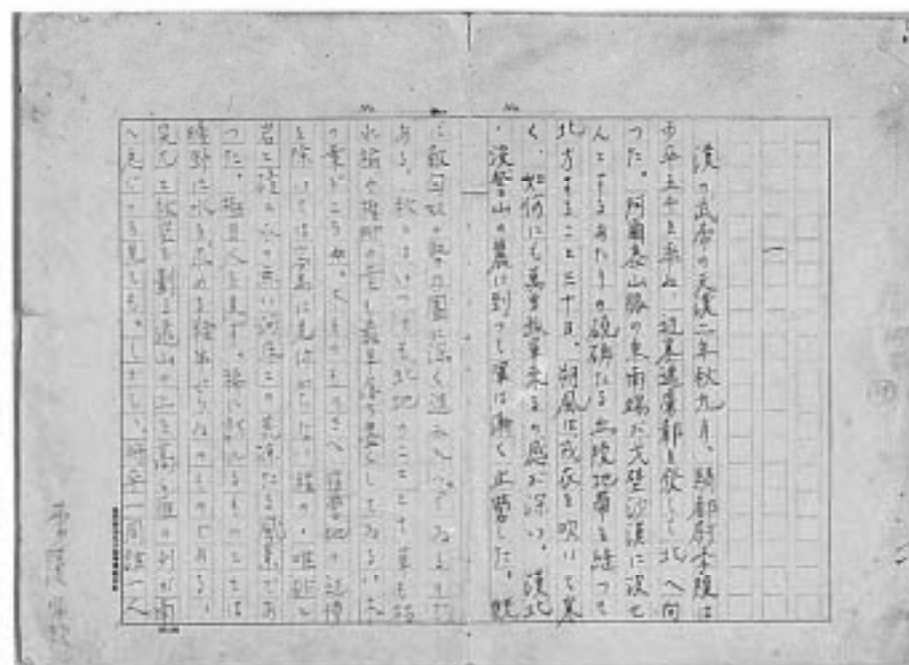 一
漢の武帝の天漢二年秋九月、騎都尉李陵は
歩卒五千を率ゐ、辺塞遮虜鄣を発して北へ向
つた。阿爾泰山脈の東南端が戈壁沙漠に没せ
んとするあたりの磽确たる丘陵地帯を縫つて
北行すること三十日。朔風は戎衣を吹いて寒
く、如何にも萬里孤軍来るの感が深い。漠北
・浚稽山の麓に到つて軍は漸く止営した。既
に敵匈奴の勢力圏に深く進み入つてゐるので
ある。秋とはいつても北地のこととて
の葉どころか、木そのものさへ宿営地の近傍
を除いては容易に見つからない程の、唯砂と
岩と磧と水の無い河床との荒涼たる風景であ
つた。極目人煙を見ず、稀に訪れるものとては
曠野に水を求める羚羊ぐらゐのものである。
突兀と秋空を劃る遠山の上を高く雁の列が南
へ急ぐのを見ても、しかし、将卒一同誰一人